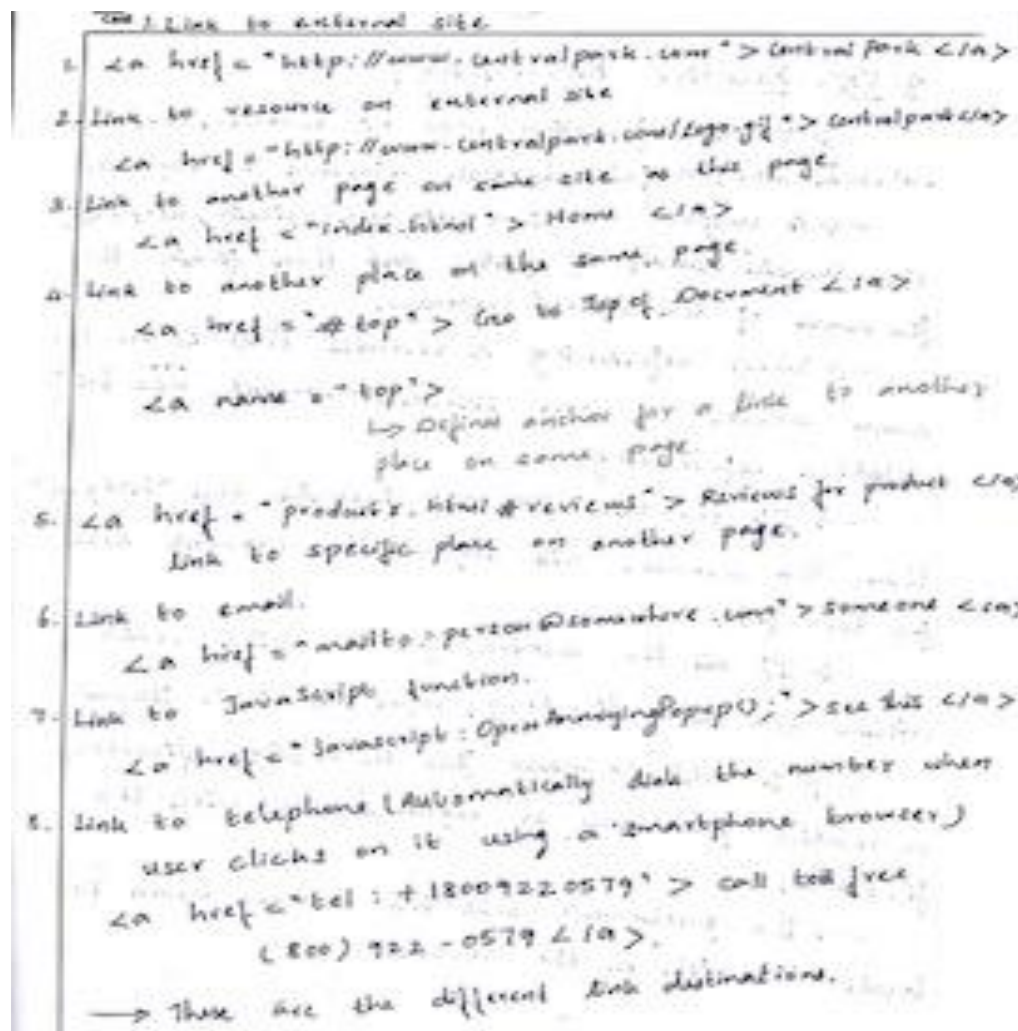 1. Link to external site
1. <a href = "http://www.centralpark.com"> Central Park </a>
2. Link to resource on external site
<a href = "http://www.centralpark.com/logo.gif"> Centralpark</a>
3. Link to another page on same site as this page.
<a href = "index.html"> Home </a>
4. Link to another place on the same page.
<a href = "#top"> Go to Top of Document </a>
<a name = "top">
↳ Defines anchor for a link to another
place on same page.
5. <a href = "productX.html#reviews"> Reviews for product </a>
Link to specific place on another page.
6. Link to email.
<a href = "mailto:person@somewhere.com"> Someone </a>
7. Link to JavaScript function.
<a href = "javascript:OpenAnnoyingPopup();"> see this </a>
8. Link to telephone (Automatically dials the number when
user clicks on it using a smartphone browser)
<a href = "tel:+18009220579"> call toll free
(800) 922-0579 </a>.
→ These are the different link distinations.